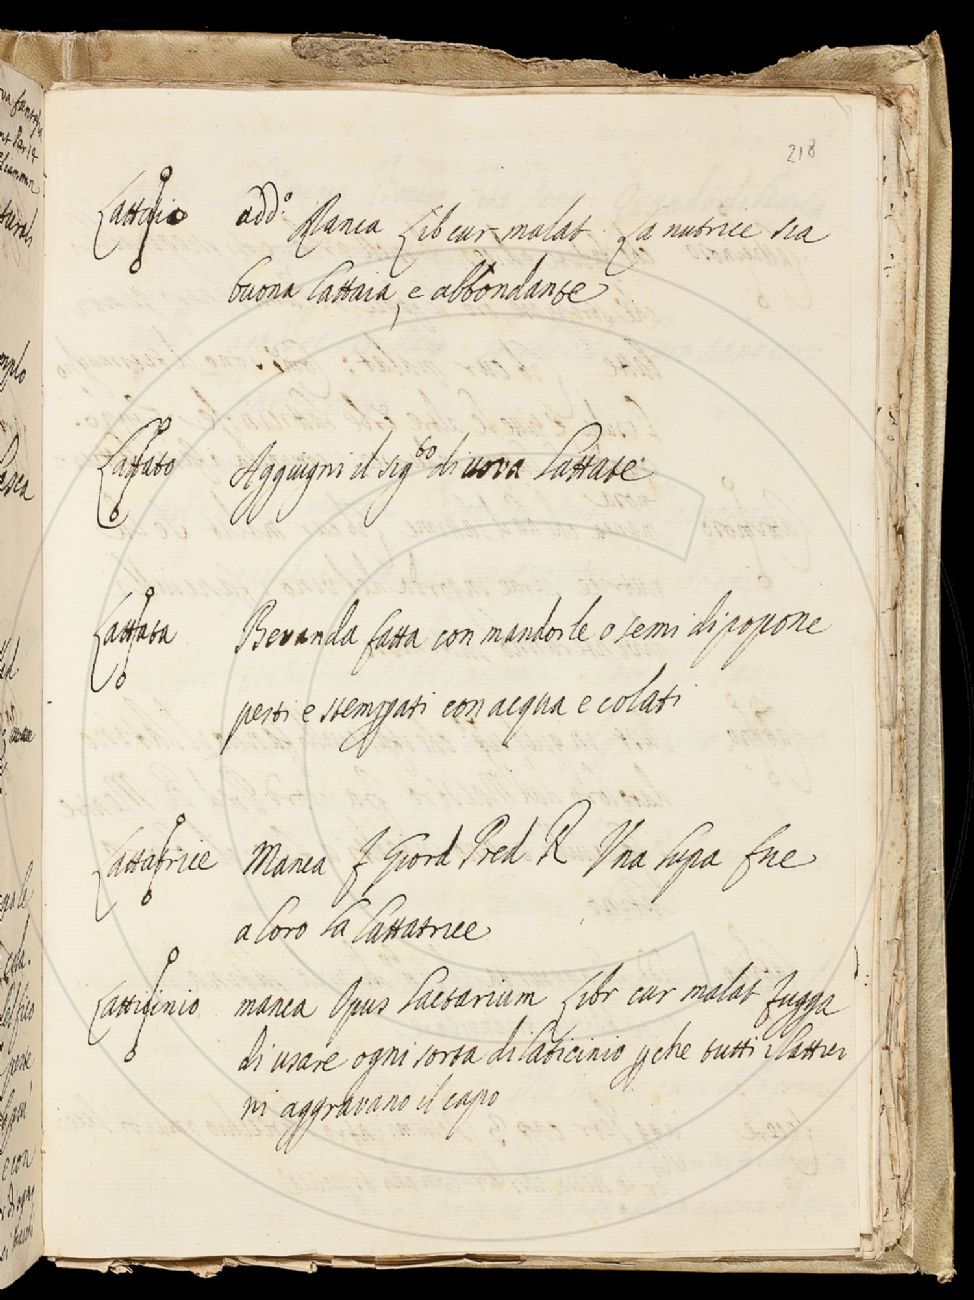 218
Lattaio add.o Manca Lib cur malat. La nutrice sia
buona lattaia, e abbondante
Lattato Aggiugni il sig.to di uova lattate
Lattata Bevanda fatta con mandorle o semi di popone
pesti e stemperati con acqua e colati
Lattatrice Manca F Giord Pred R Una lupa fue
a loro la lattatrice
Latticinio manca Opus lactarium Libr cur malat fugga
di usare ogni sorta di laticinio pche tutti i lattici
ni aggravano il capo